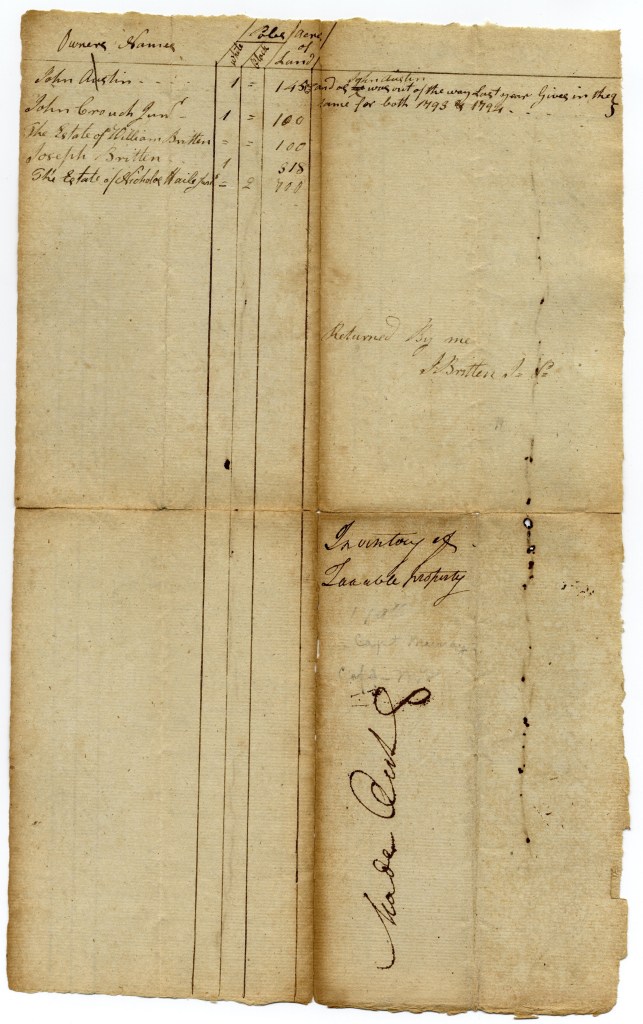 Owners Names / Poles / Acres
White Black of
Land
John Austin - - - - 1 = 145 and as John Austin was out of the way last year Gives in the
same for both 1793 & 1794 - - -
John Crouch Junr 1 = 100
The Estate of William Britten = = 100
Joseph Britten 1 318
The Estate of Nicholas Haile = 2 700
Returned By me
J Britten
Inventory of
Taxable property
Made Out